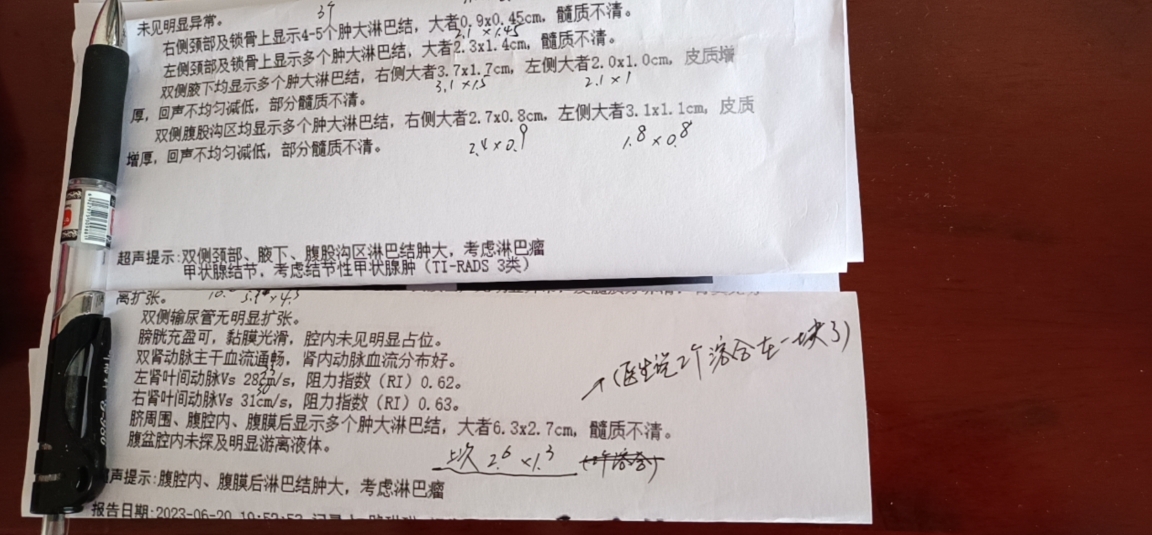 未见明显异常。
右侧颈部及锁骨上显示4-5个肿大淋巴结，大者0.9x0.45cm，髓质不清。
2.1 x1.45
左侧颈部及锁骨上显示多个肿大淋巴结，大者2.3x1.4cm，髓质不清。
双侧腋下均显示多个肿大淋巴结，右侧大者3.7x1.7cm，左侧大者2.0x1.0cm，皮质增
3.1 x1.5 2.1 x1
厚，回声不均匀减低，部分髓质不清。
双侧腹股沟区均显示多个肿大淋巴结，右侧大者2.7x0.8cm，左侧大者3.1x1.1cm，皮质
2.4 x0.9 1.8 x0.8
增厚，回声不均匀减低，部分髓质不清。
超声提示:双侧颈部、腋下、腹股沟区淋巴结肿大，考虑淋巴瘤
甲状腺结节，考虑结节性甲状腺肿（TI-RADS 3类）
离扩张。
双侧输尿管无明显扩张。
膀胱充盈可，黏膜光滑，腔内未见明显占位。
双肾动脉主干血流通畅，肾内动脉血流分布好。
左肾叶间动脉Vs 28cm/s，阻力指数（RI）0.62。
右肾叶间动脉Vs 31cm/s，阻力指数（RI）0.63。
(医生说2个溶合在一块了)
脐周围、腹腔内、腹膜后显示多个肿大淋巴结，大者6.3x2.7cm，髓质不清。
腹盆腔内未探及明显游离液体。
上次 2.6 x1.3
声提示:腹腔内、腹膜后淋巴结肿大，考虑淋巴瘤
报告日期:2023-06-20